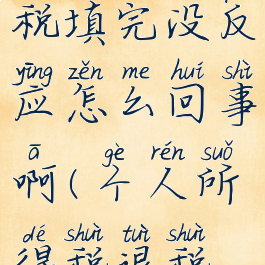 税填完没反
yīng zěn me huí shì
应怎么回事
ā gè rén suǒ
啊(个人所
dé shuì tuì shuì
得税退税